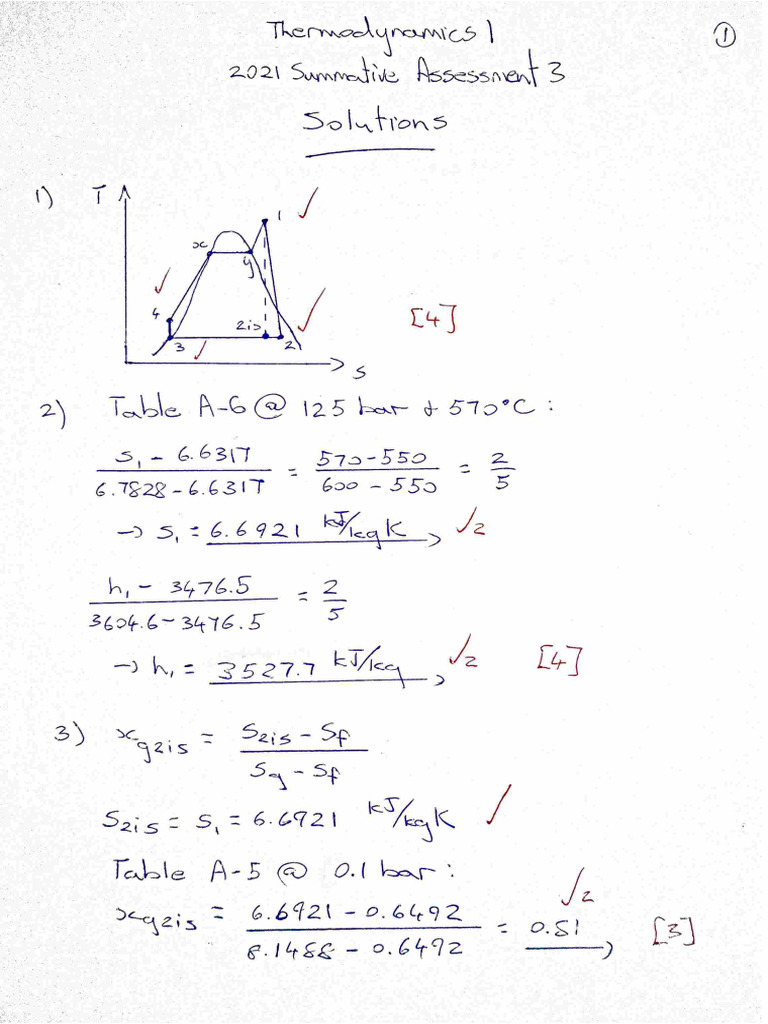 Thermodynamics 1
①
2021 Summative Assessment 3
Solutions
1) T
1
x
y
4
2is
3
2
[4]
s
2) Table A-6 @ 125 bar & 570°C :
s₁ - 6.6317 / 6.7828 - 6.6317 = 570-550 / 600-550 = 2/5
→ s₁ = 6.6921 kJ/kgK, √2
h₁ - 3476.5 / 3604.6-3476.5 = 2/5
→ h₁ = 3527.7 kJ/kg, √2 [4]
3) x_g2is = S2is - Sf / Sg - Sf
S2is = S₁ = 6.6921 kJ/kgK ✓
Table A-5 @ 0.1 bar :
x_g2is = 6.6921 - 0.6492 / 8.1488 - 0.6492 = 0.81, √2 [3]